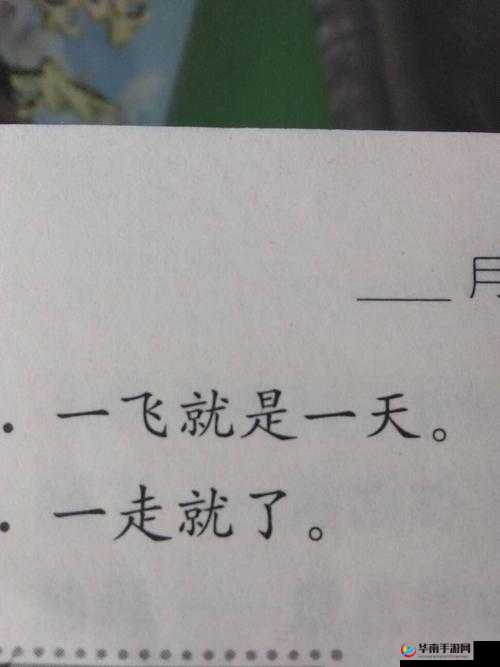 ____ 月
. 一飞就是一天。
. 一走就了。
华南手游网